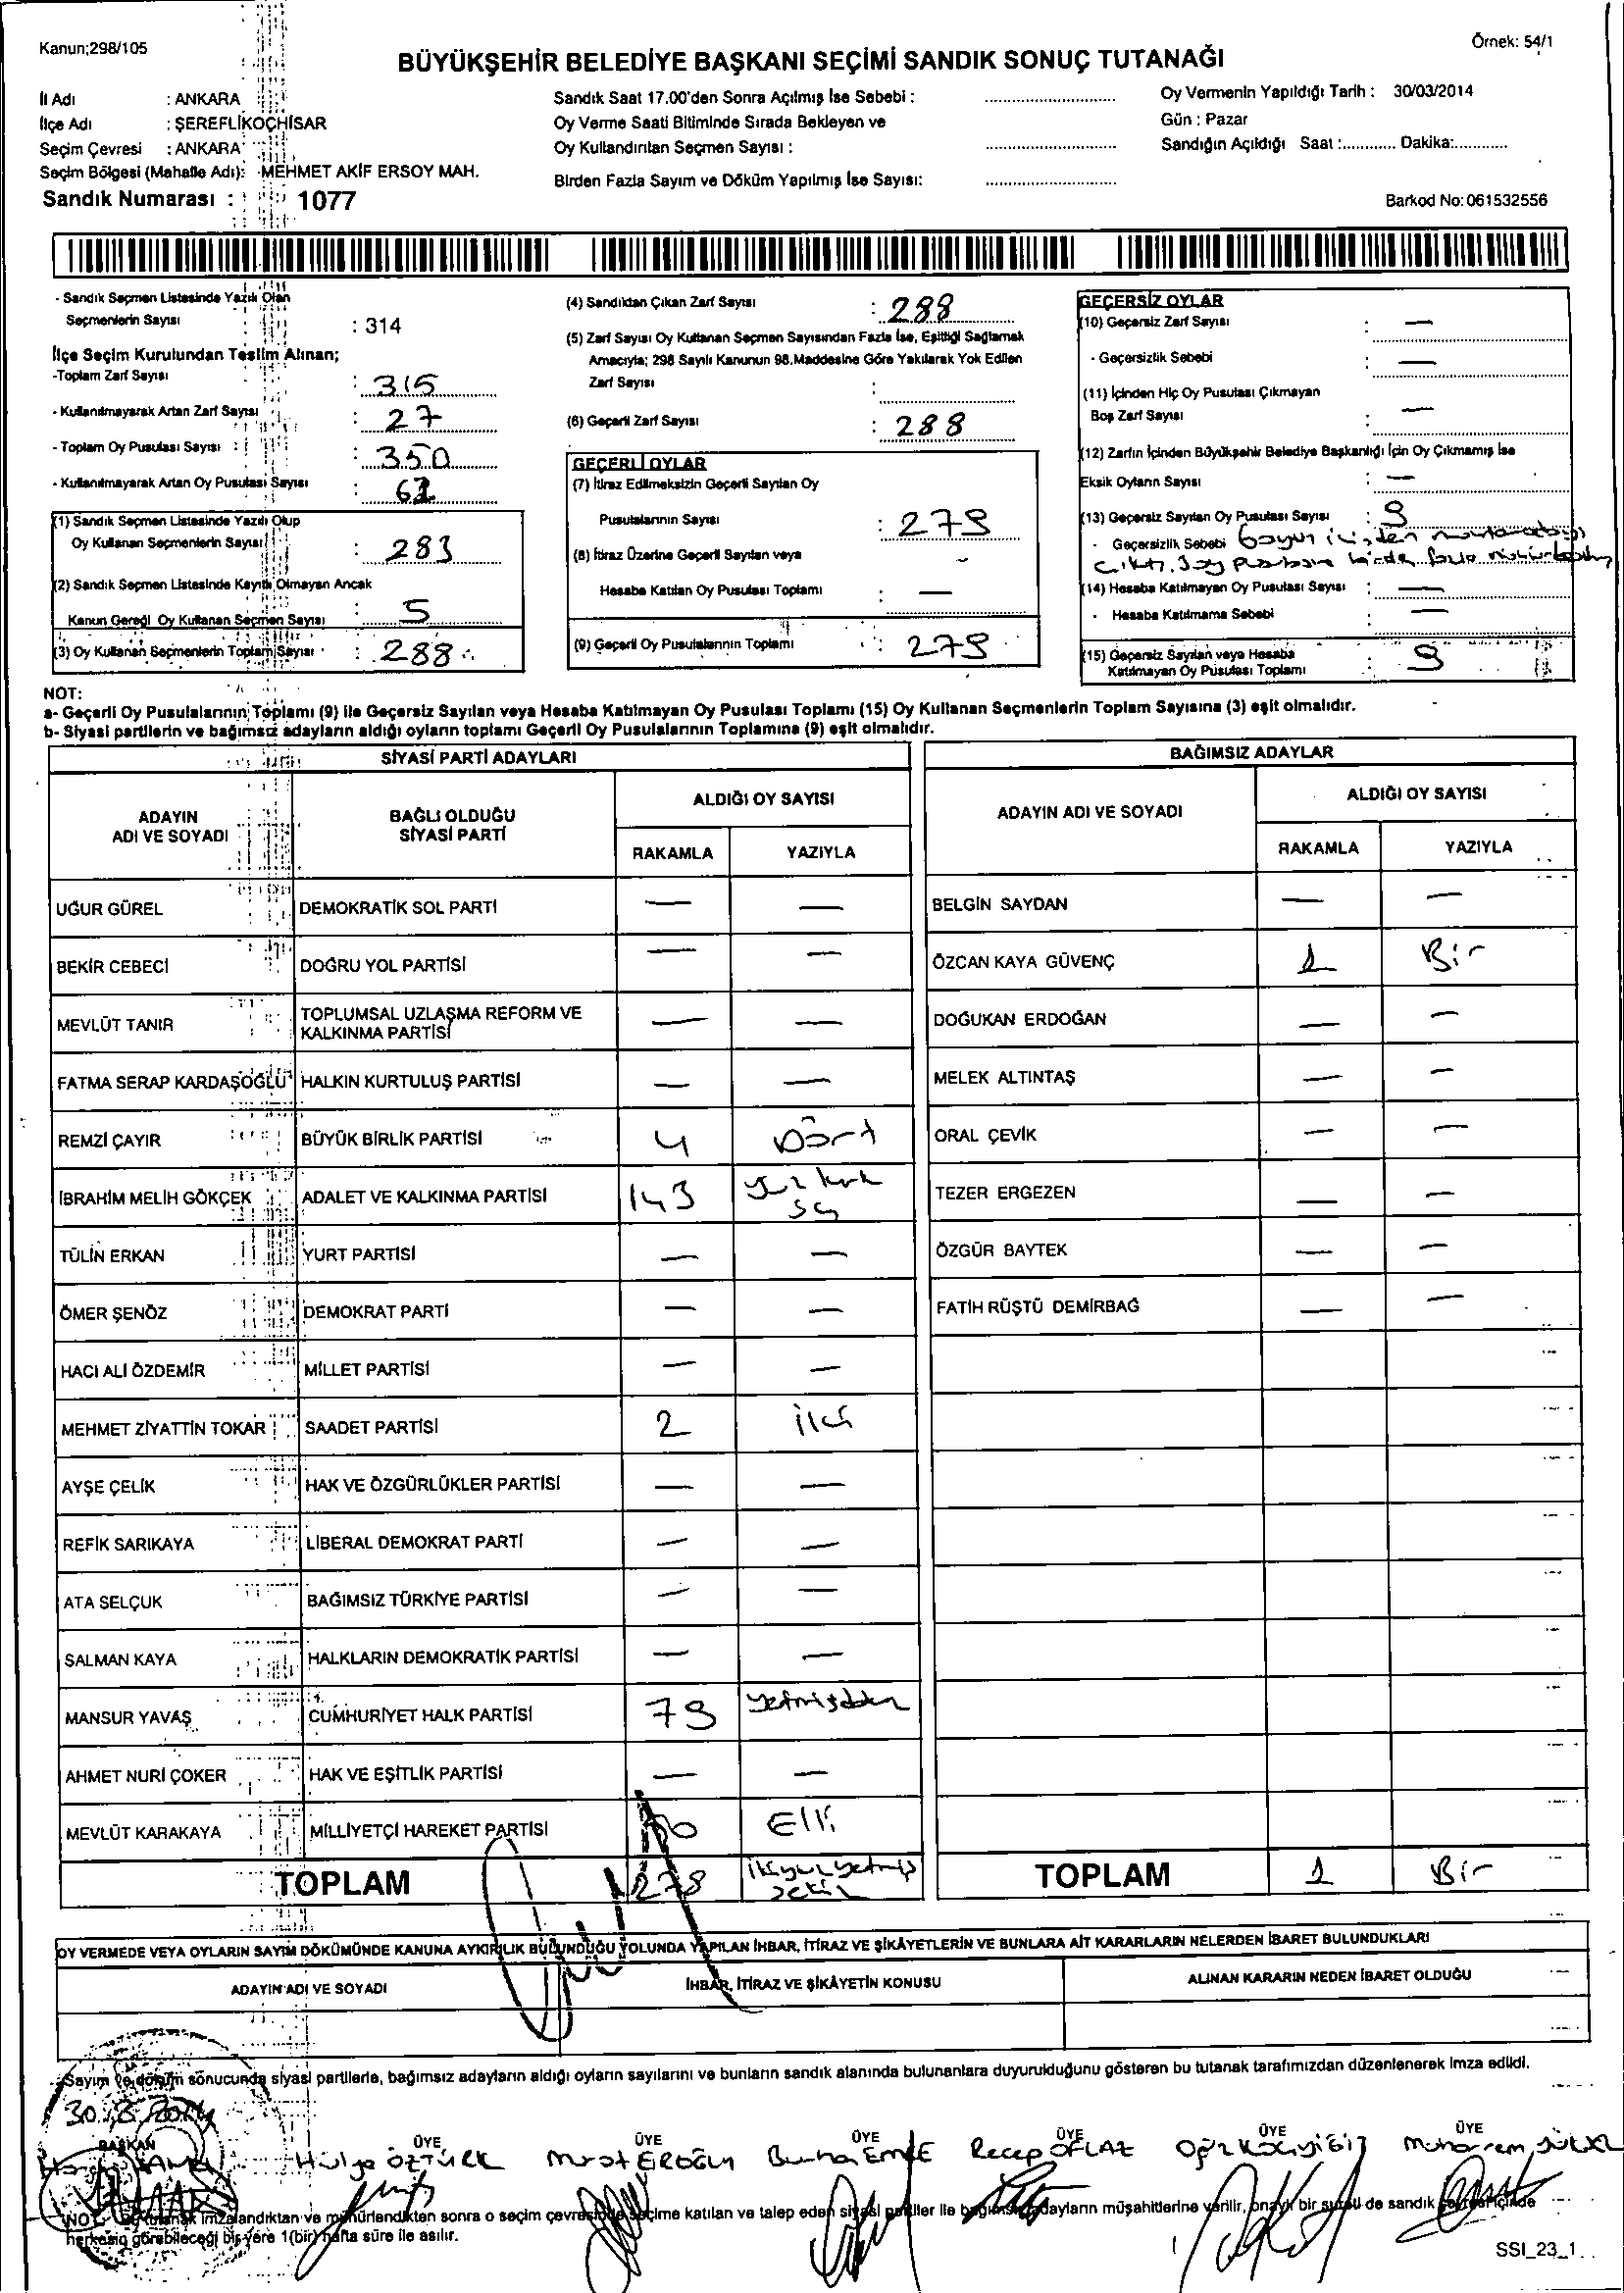 Kanun;298/105
Örnek: 54/1
BÜYÜKŞEHİR BELEDİYE BAŞKANI SEÇİMİ SANDIK SONUÇ TUTANAĞI
İl Adı : ANKARA
İlçe Adı : ŞEREFLİKOÇHİSAR
Seçim Çevresi : ANKARA
Seçim Bölgesi (Mahalle Adı): MEHMET AKİF ERSOY MAH.
Sandık Numarası : 1077
Sandık Saat 17.00'den Sonra Açılmış İse Sebebi :
Oy Verme Saati Bitiminde Sırada Bekleyen ve
Oy Kullandırılan Seçmen Sayısı :
Birden Fazla Sayım ve Döküm Yapılmış İse Sayısı:
Oy Vermenin Yapıldığı Tarih : 30/03/2014
Gün : Pazar
Sandığın Açıldığı Saat :............ Dakika:...........
Barkod No: 061532556
- Sandık Seçmen Listesinde Yazılı Olan
Seçmenlerin Sayısı : 314
İlçe Seçim Kurulundan Teslim Alınan;
-Toplam Zarf Sayısı : 315
- Kullanılmayarak Artan Zarf Sayısı : 27
- Toplam Oy Pusulası Sayısı : 350
- Kullanılmayarak Artan Oy Pusulası Sayısı : 62
(1) Sandık Seçmen Listesinde Yazılı Olup
Oy Kullanan Seçmenlerin Sayısı : 283
(2) Sandık Seçmen Listesinde Kayıtlı Olmayan Ancak
Kanun Gereği Oy Kullanan Seçmen Sayısı : 5
(3) Oy Kullanan Seçmenlerin Toplam Sayısı : 288
(4) Sandıktan Çıkan Zarf Sayısı : 288
(5) Zarf Sayısı Oy Kullanan Seçmen Sayısından Fazla İse, Eşitliği Sağlamak
Amacıyla; 298 Sayılı Kanunun 98.Maddesine Göre Yakılarak Yok Edilen
Zarf Sayısı :
(6) Geçerli Zarf Sayısı : 288
GEÇERLİ OYLAR
(7) İtiraz Edilmeksizin Geçerli Sayılan Oy
Pusulalarının Sayısı : 279
(8) İtiraz Üzerine Geçerli Sayılan veya
Hesaba Katılan Oy Pusulası Toplamı : —
(9) Geçerli Oy Pusulalarının Toplamı : 279
GEÇERSİZ OYLAR
(10) Geçersiz Zarf Sayısı : —
- Geçersizlik Sebebi : —
(11) İçinden Hiç Oy Pusulası Çıkmayan
Boş Zarf Sayısı : —
(12) Zarfın İçinden Büyükşehir Belediye Başkanlığı İçin Oy Çıkmamış İse
Eksik Oyların Sayısı : —
(13) Geçersiz Sayılan Oy Pusulası Sayısı : 9
- Geçersizlik Sebebi
(14) Hesaba Katılmayan Oy Pusulası Sayısı : —
- Hesaba Katılmama Sebebi : —
(15) Geçersiz Sayılan veya Hesaba
Katılmayan Oy Pusulası Toplamı : 9
NOT:
a- Geçerli Oy Pusulalarının Toplamı (9) ile Geçersiz Sayılan veya Hesaba Katılmayan Oy Pusulası Toplamı (15) Oy Kullanan Seçmenlerin Toplam Sayısına (3) eşit olmalıdır.
b- Siyasi partilerin ve bağımsız adayların aldığı oyların toplamı Geçerli Oy Pusulalarının Toplamına (9) eşit olmalıdır.
SİYASİ PARTİ ADAYLARI
ADAYIN ADI VE SOYADI
BAĞLI OLDUĞU SİYASİ PARTİ
ALDIĞI OY SAYISI
RAKAMLA YAZIYLA
UĞUR GÜREL DEMOKRATİK SOL PARTİ — —
BEKİR CEBECİ DOĞRU YOL PARTİSİ — —
MEVLÜT TANIR TOPLUMSAL UZLAŞMA REFORM VE KALKINMA PARTİSİ — —
FATMA SERAP KARDAŞOĞLU HALKIN KURTULUŞ PARTİSİ — —
REMZİ ÇAYIR BÜYÜK BİRLİK PARTİSİ 4 Dört
İBRAHİM MELİH GÖKÇEK ADALET VE KALKINMA PARTİSİ 143
TÜLİN ERKAN YURT PARTİSİ — —
ÖMER ŞENÖZ DEMOKRAT PARTİ — —
HACI ALİ ÖZDEMİR MİLLET PARTİSİ — —
MEHMET ZİYATTİN TOKAR SAADET PARTİSİ 2 iki
AYŞE ÇELİK HAK VE ÖZGÜRLÜKLER PARTİSİ — —
REFİK SARIKAYA LİBERAL DEMOKRAT PARTİ — —
ATA SELÇUK BAĞIMSIZ TÜRKİYE PARTİSİ — —
SALMAN KAYA HALKLARIN DEMOKRATİK PARTİSİ — —
MANSUR YAVAŞ CUMHURİYET HALK PARTİSİ 79
AHMET NURİ ÇOKER HAK VE EŞİTLİK PARTİSİ — —
MEVLÜT KARAKAYA MİLLİYETÇİ HAREKET PARTİSİ 50 Elli
TOPLAM 278
BAĞIMSIZ ADAYLAR
ADAYIN ADI VE SOYADI
ALDIĞI OY SAYISI
RAKAMLA YAZIYLA
BELGİN SAYDAN — —
ÖZCAN KAYA GÜVENÇ 1 Bir
DOĞUKAN ERDOĞAN — —
MELEK ALTINTAŞ — —
ORAL ÇEVİK — —
TEZER ERGEZEN — —
ÖZGÜR BAYTEK — —
FATİH RÜŞTÜ DEMİRBAĞ — —
TOPLAM 1 Bir
OY VERMEDE VEYA OYLARIN SAYIM DÖKÜMÜNDE KANUNA AYKIRILIK BULUNDUĞU YOLUNDA YAPILAN İHBAR, İTİRAZ VE ŞİKÂYETLERİN VE BUNLARA AİT KARARLARIN NELERDEN İBARET BULUNDUKLARI
ADAYIN ADI VE SOYADI
İHBAR, İTİRAZ VE ŞİKÂYETİN KONUSU
ALINAN KARARIN NEDEN İBARET OLDUĞU
Sayım ve döküm sonucunda siyasi partilerle, bağımsız adayların aldığı oyların sayılarını ve bunların sandık alanında bulunanlara duyurulduğunu gösteren bu tutanak tarafımızdan düzenlenerek imza edildi.
BAŞKAN ÜYE ÜYE ÜYE ÜYE ÜYE ÜYE
Hülya ÖZTÜRK Murat EROĞLU EMRE Recep OFLAZ Muharrem
NOT: Bu tutanak imzalandıktan ve mühürlendikten sonra o seçim çevresinde seçime katılan ve talep eden siyasi partiler ile bağımsız adayların müşahitlerine verilir, onaylı bir sureti de sandık çevresi içinde
herkesin görebileceği bir yere 1(bir) hafta süre ile asılır.
SSI_23_1